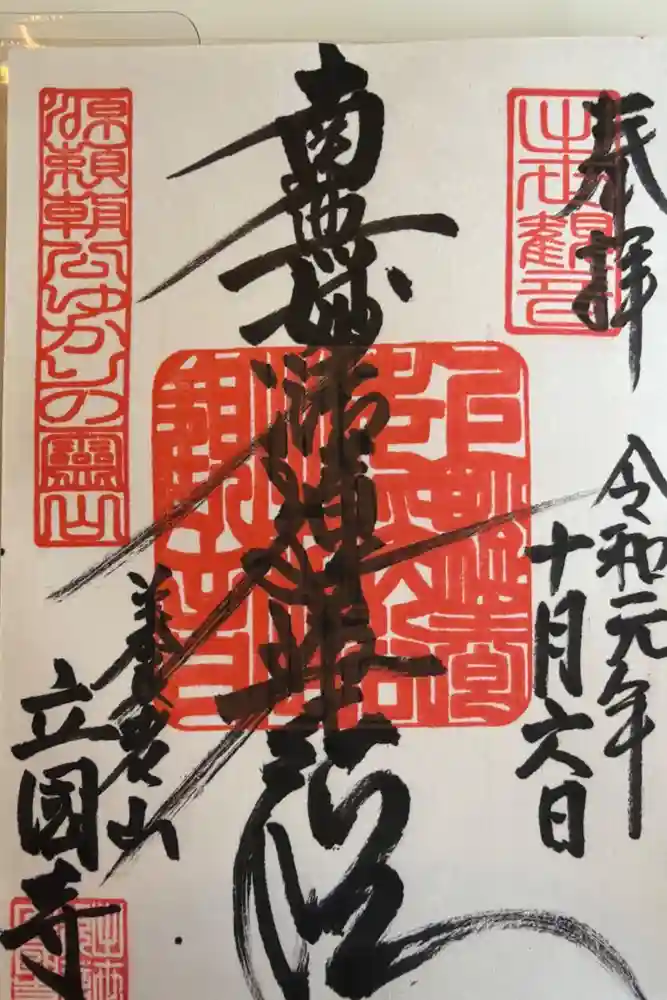 奉拝
出世観音
令和元年
十月六日
南無妙法蓮華経
源頼朝公ゆかりの靈山
養老山
立國寺